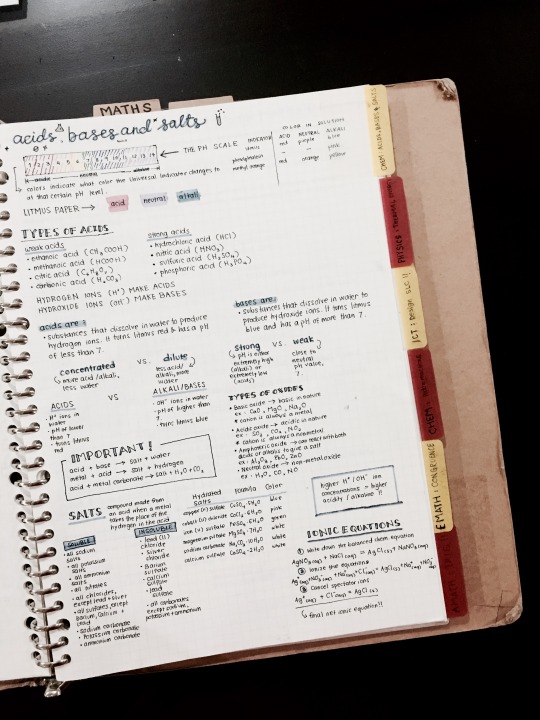 MATHS
acids, bases and salts
1 2 3 4 5 6 7 8 9 10 11 12 13 14
← THE PH SCALE
acidic
neutral
alkaline
colors indicate what color the Universal Indicator changes to
at that certain pH level.
INDICATOR
COLOUR IN SOLUTION
ACID NEUTRAL ALKALI
litmus red purple blue
phenolphthalein
pink
methyl orange red orange yellow
LITMUS PAPER → acid neutral alkali
TYPES OF ACIDS
weak acids
• ethanoic acid (CH3COOH)
• methanoic acid (HCOOH)
• citric acid
• carbonic acid (H2CO3)
strong acids
• hydrochloric acid (HCl)
• nitric acid (HNO3)
• sulfuric acid (H2SO4)
• phosphoric acid (H3PO4)
HYDROGEN IONS (H+) MAKE ACIDS
HYDROXIDE IONS (OH-) MAKE BASES
acids are:
• Substances that dissolve in water to produce
hydrogen ions. It turns litmus red & has a pH
of less than 7.
bases are:
• substances that dissolve in water to
produce hydroxide ions. It turns litmus
blue and has a pH of more than 7.
concentrated vs. dilute
more acid/alkali,
less water
less acid/
alkali, more
water
strong vs. weak
pH is either
extremely high
(alkali) or
extremely low
(acids)
close to
neutral
pH value,
7.
ACIDS
• H+ ions in
water
• pH of lower
than 7
• turns litmus
red
VS
ALKALI/BASES
• OH- ions in water
• pH of higher
than 7
• turns litmus blue
TYPES OF OXIDES
• Basic oxide → basic in nature
ex: CaO, MgO, Na2O
* cation is always a metal
• Acidic oxide → acidic in nature
ex: SO2, CO2, NO2
* cation is always a nonmetal
• Amphoteric oxide → can react with both
acids or alkalis to give a salt
ex: Al2O3, PbO, ZnO
• Neutral oxide → non-metal oxide
ex: H2O, CO, NO
IMPORTANT!
acid + base → salt + water
metal + acid → salt + hydrogen
acid + metal carbonate → salt + H2O + CO2
higher H+/OH- ion
concentrations = higher
acidity / alkaline !!
SALTS
compound made from
an acid when a metal
takes the place of the
hydrogen in the acid
SOLUBLE
• all sodium
salts
• all potassium
salts
• all ammonium
salts
• all nitrates
• all chlorides,
except lead + silver
• all sulfates, except
barium, calcium +
lead
• sodium carbonate
• Potassium carbonate
• ammonium carbonate
INSOLUBLE
• lead (II)
chloride
• silver
chloride
• Barium
sulfate
• calcium
sulfate
• lead
sulfate
• all carbonates
except sodium,
potassium + ammonium
Hydrated
Salts Formula Color
copper (II) sulfate CuSO4·5H2O blue
cobalt (II) chloride CoCl2·6H2O pink
iron (II) sulfate FeSO4·6H2O green
magnesium sulfate MgSO4·7H2O white
sodium carbonate Na2CO3·10H2O white
calcium sulfate CaSO4·2H2O white
IONIC EQUATIONS
① Write down the balanced chem equation
AgNO3(aq) + NaCl(aq) → AgCl(s) + NaNO3(aq)
② Ionize the equations
Ag+(aq) + NO3-(aq) + Na+(aq) + Cl-(aq) → AgCl(s) + Na+(aq) + NO3-(aq)
③ Cancel spectator ions
Ag+(aq) + Cl-(aq) → AgCl(s)
final net ionic equation!!
CHEM: ACIDS, BASES & SALTS
PHYSICS:
ICT: Design
CHEM:
EMATH: CONGRUENCE